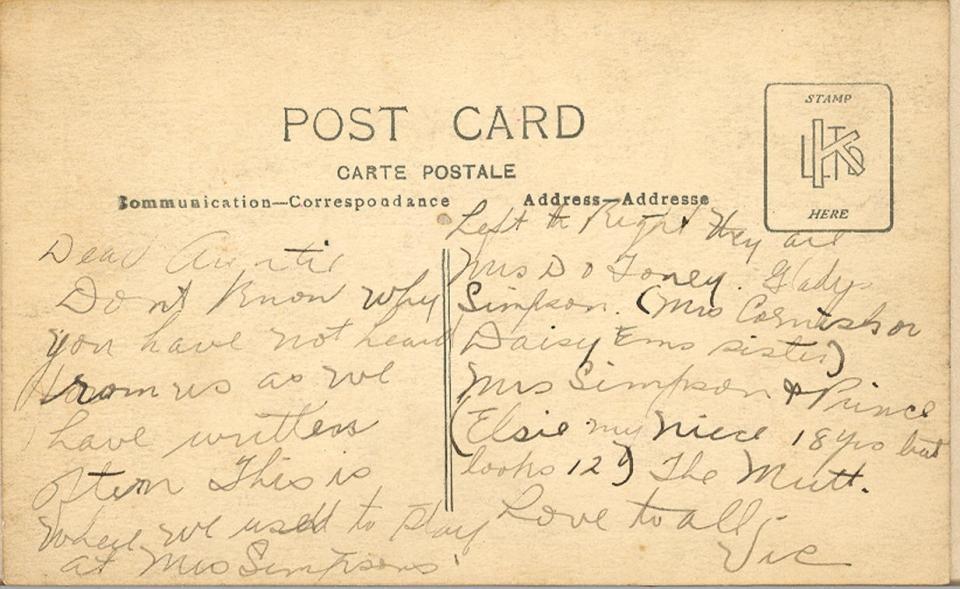 POST CARD
CARTE POSTALE
Communication—Correspondance
Address—Addresse
STAMP
HERE
Dear Auntie
Dont Know why
you have not heard
from us as we
have written
often This is
where we used to play
at Mrs Simpsons'
Left to Right they are
Mrs D D Toney. Gladys
Simpson. (Mrs Cornish or
Daisy Ems sister)
Mrs Simpson & Prince
(Elsie my niece 18 yrs but
looks 12) The Mutt.
Love to all,
Vic